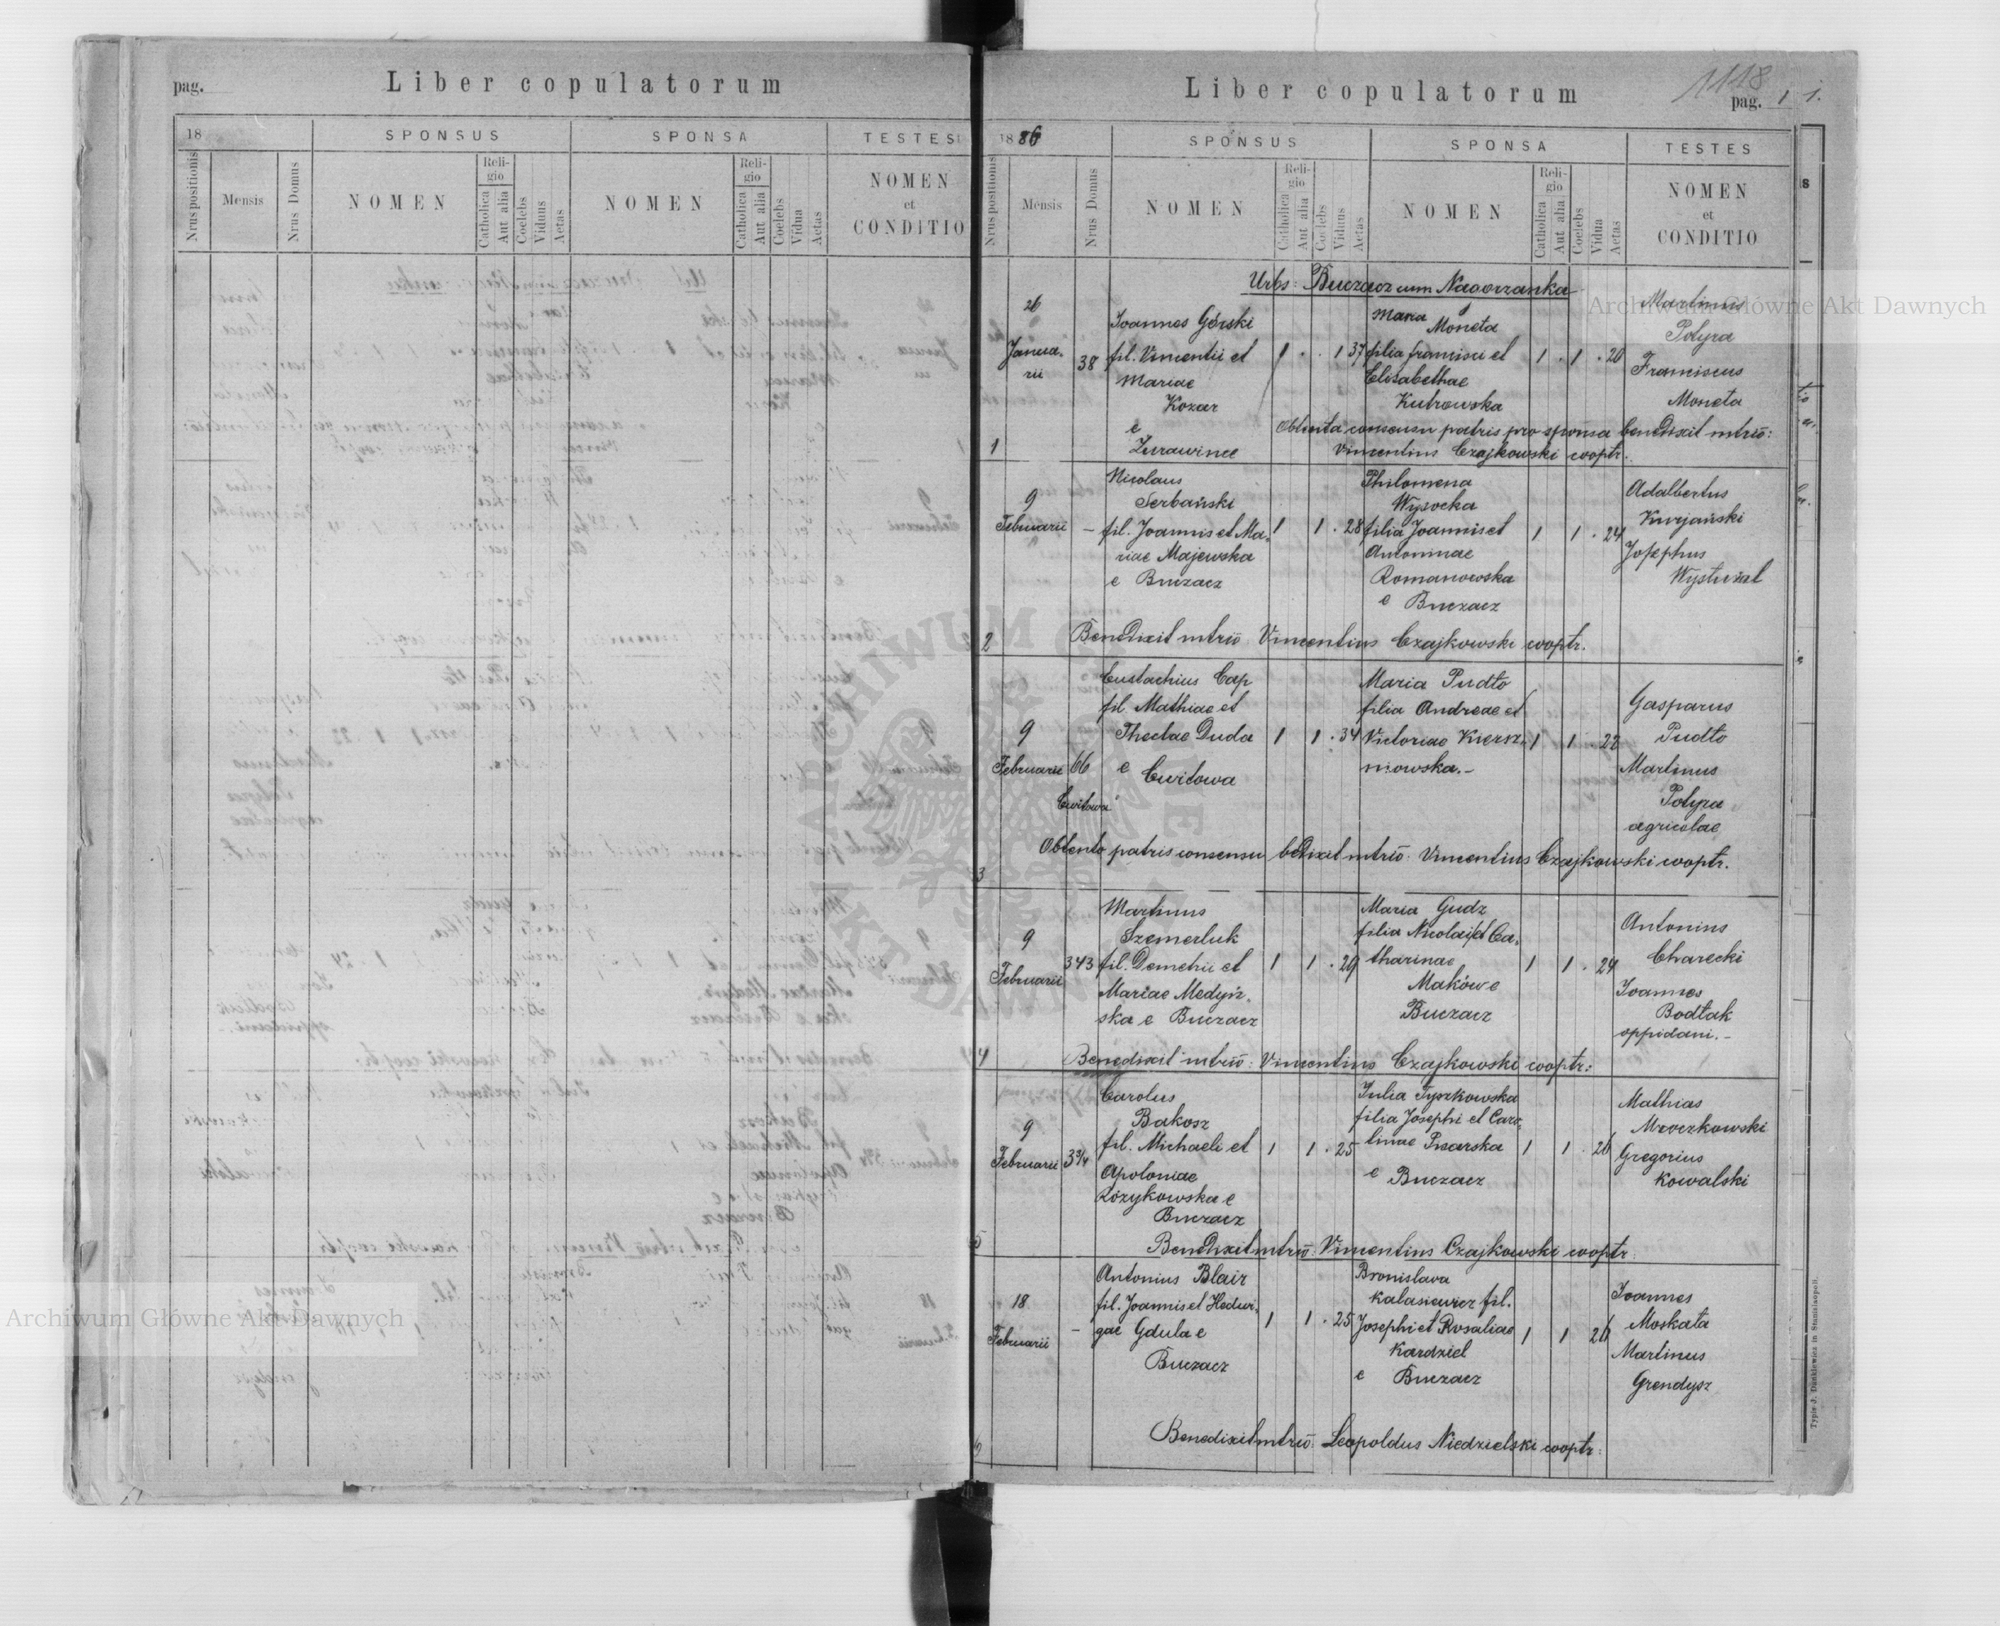 pag.
Liber copulatorum
18
SPONSUS
SPONSA
TESTES
Nrus positionis
Mensis
Nrus Domus
NOMEN
Religio
Catholica
Aut alia
Coelebs
Viduus
Aetas
NOMEN
Religio
Catholica
Aut alia
Coelebs
Vidua
Aetas
NOMEN
et
CONDITIO
Liber copulatorum
1118
pag. 1 1.
1886
SPONSUS
SPONSA
TESTES
Nrus positionis
Mensis
Nrus Domus
NOMEN
Religio
Catholica
Aut alia
Coelebs
Viduus
Aetas
NOMEN
Religio
Catholica
Aut alia
Coelebs
Vidua
Aetas
NOMEN
et
CONDITIO
Urbs: Buczacz cum Nagorzanka
1
26
Janua-
rii
38
Joannes Górski
fil. Vincentii et
Mariae
Kozar
e
Zurawince
1 . . 1 37
Maria
Moneta
filia francisci et
Elisabethae
Kutrowska
1 . 1 . 20
Martinus
Potyra
Franciscus
Moneta
Obtenta consensu patris pro sponsa benedixit mtrio:
Vincentius Czajkowski cooptr.
2
9
Februarii
–
Nicolaus
Serbański
fil. Joannis et Ma-
riae Majewska
e Buczacz
1 1 . 28
Philomena
Wysocka
filia Joannis et
Antoninae
Romanowska
e Buczacz
1 1 . 24
Adalbertus
Kurjański
Josephus
Benedixit mtrio Vincentius Czajkowski cooptr.
3
9
Februarii
66
Cwitowa
Eustachius Cap
fil Mathiae et
Theclae Duda
e Cwitowa
1 1 . 34
Maria Pudto
filia Andreae et
Victoriae
niowska.–
1 1 . 22
Gasparus
Pudto
Martinus
Potyra
agricolae
Obtento patris consensu bedixit mtrio: Vincentius Czajkowski cooptr.
4
9
Februarii
343
Martinus
Szemerluk
fil. Demetrii et
Mariae Medyń-
ska e Buczacz
1 1 . 29
Maria Gudz
filia Nicolai et Ca-
tharinae
Maków e
Buczacz
1 1 . 24
Antonius
Charecki
Joannes
Bodtak
oppidani.–
Benedixit mtrio: Vincentius Czajkowski cooptr:
5
9
Februarii
Carolus
Bakosz
fil. Michaelis et
Apoloniae
e
Buczacz
1 1 . 25
Julia Tyszkowska
filia Josephi et Caro-
linae Pisarska
e Buczacz
1 1 . 26
Mathias
Mroczkowski
Gregorius
Kowalski
Benedixit mtrio: Vincentius Czajkowski cooptr.
6
18
Februarii
–
Antonius Blair
fil. Joannis et Hedwi-
gae Gdula e
Buczacz
1 1 . 25
Bronislava
Kalasiewicz fil.
Josephi et Rosaliae
Kardziel
e Buczacz
1 1 26
Joannes
Moskata
Martinus
Grendysz
Benedixit mtrio: Leopoldus Niedzielski cooptr:
Typis J. Dankiewicz in Stanislaopoli.
Archiwum Główne Akt Dawnych
Archiwum Główne Akt Dawnych
ARCHIWUM GŁÓWNE AKT DAWNYCH